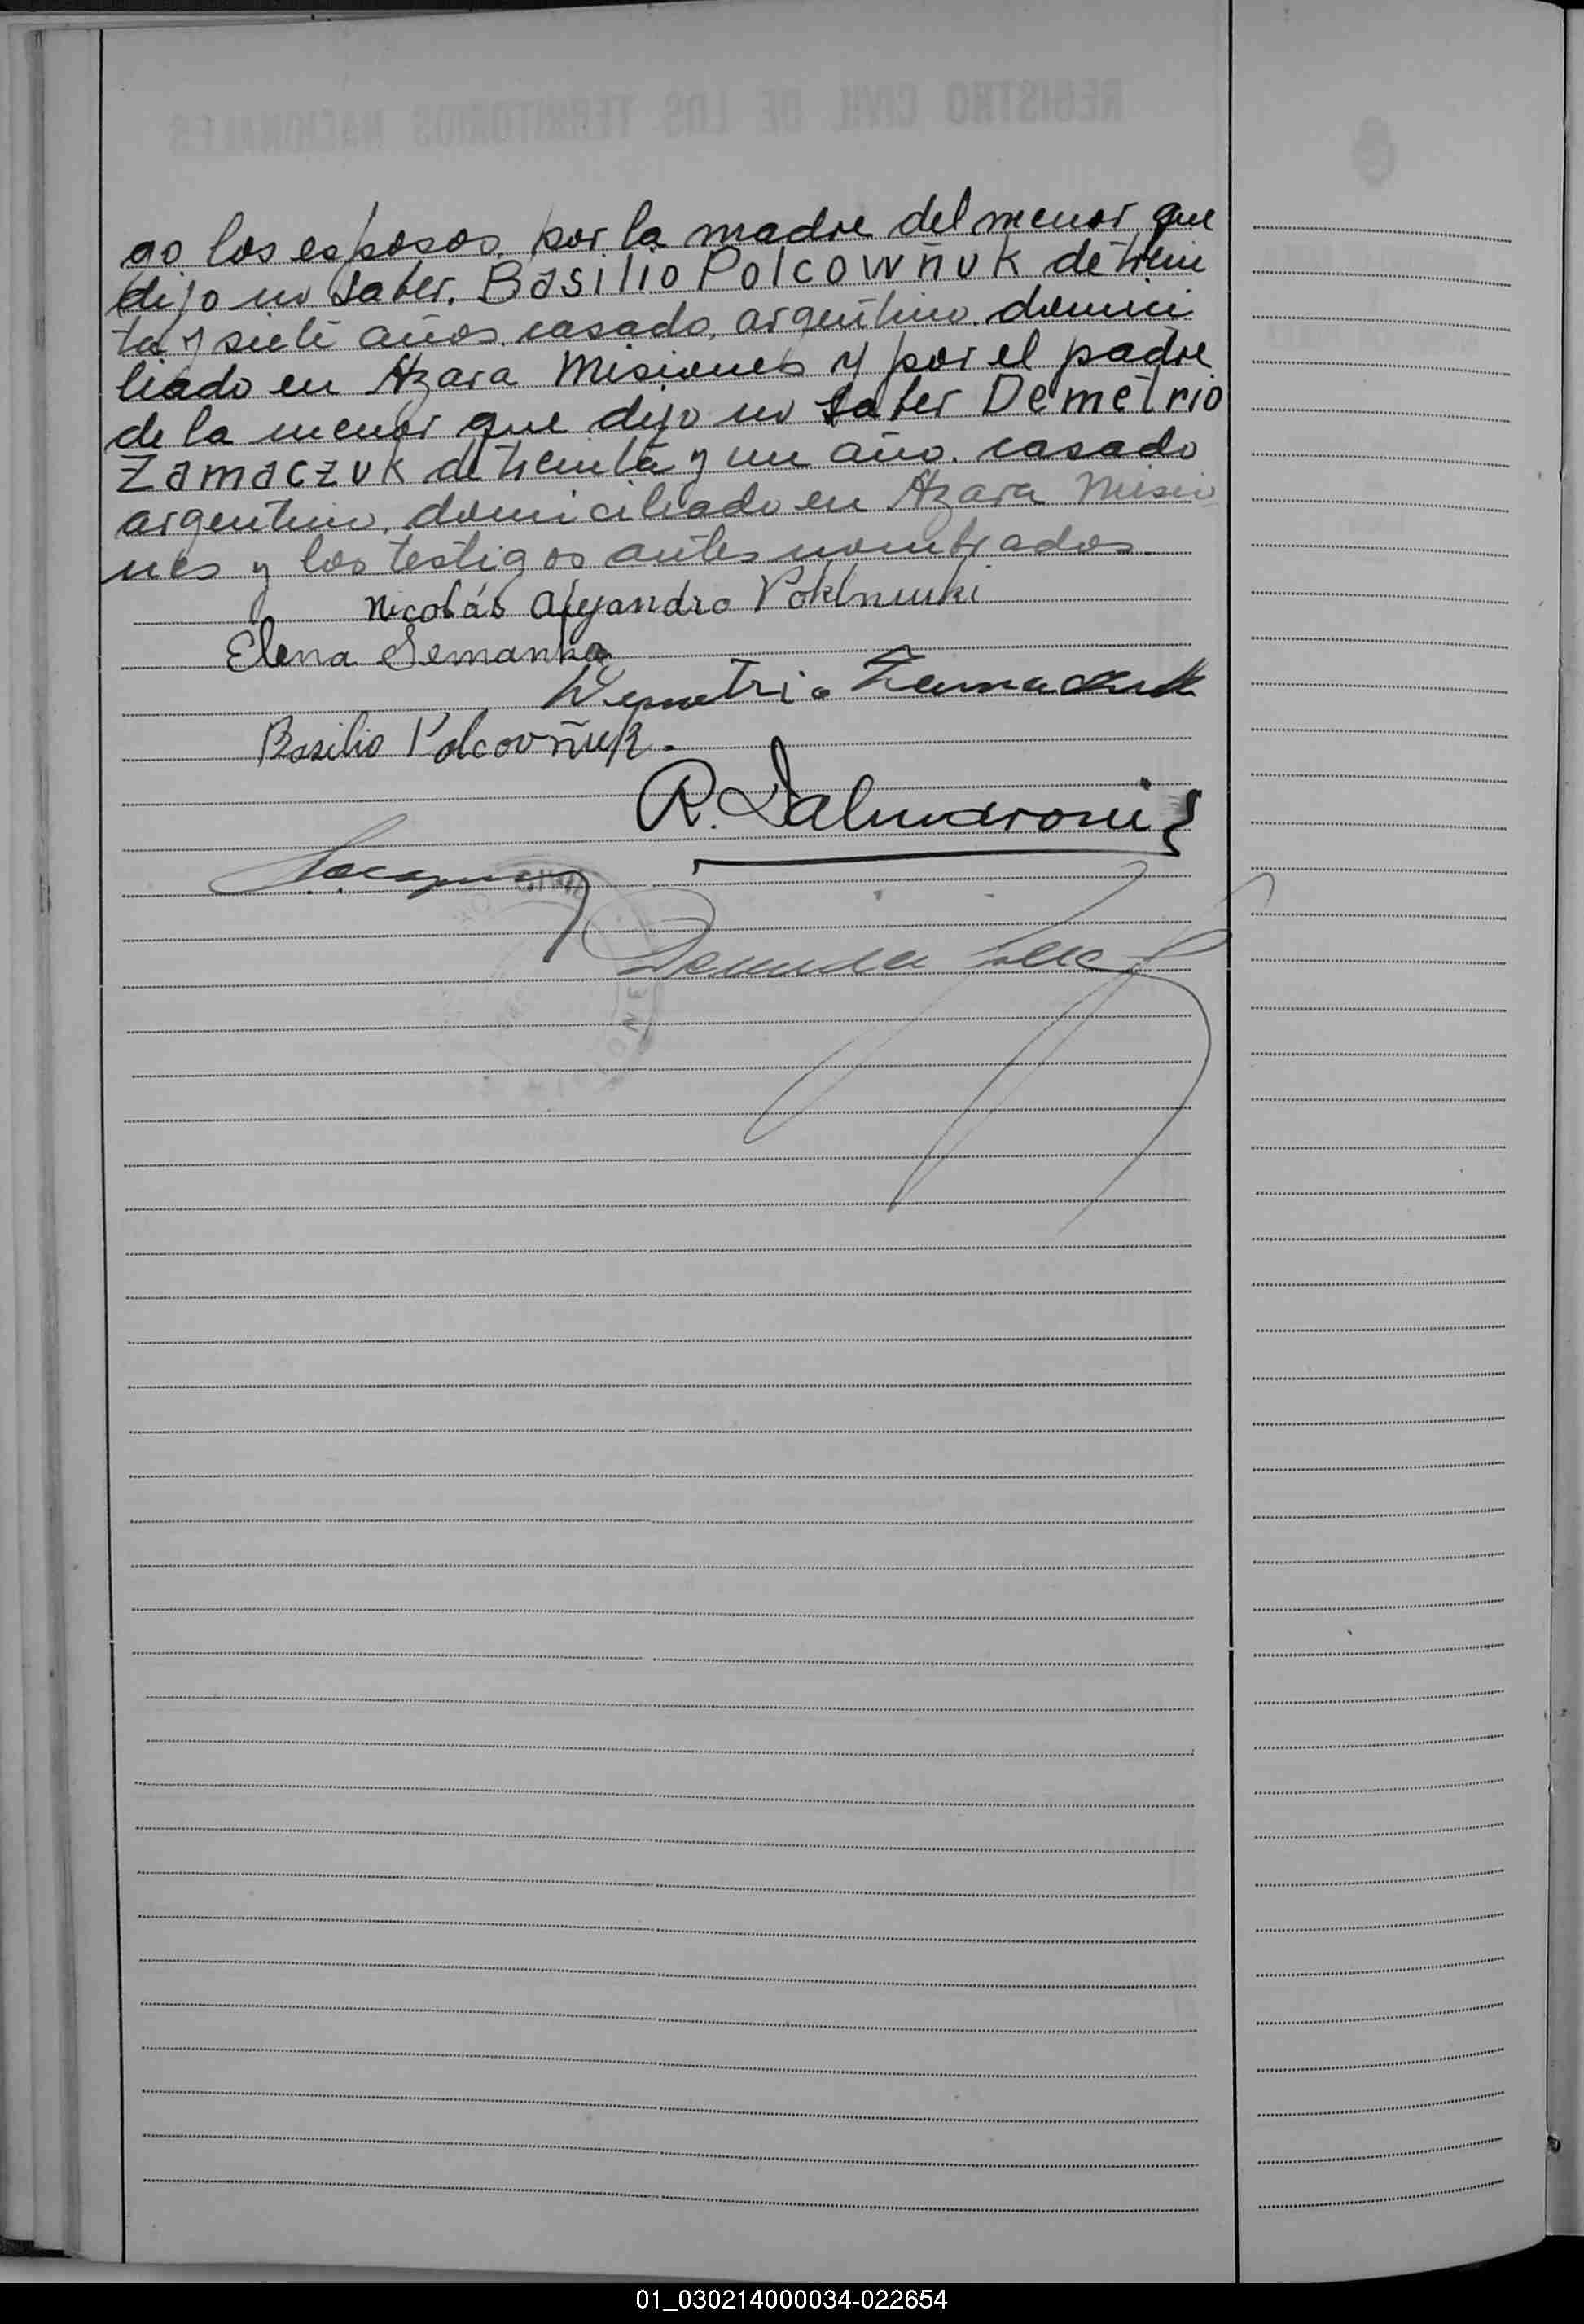 go los esposos, por la madre del menor que
dijo no saber. Basilio Polcowñuk de trein
ta y siete años, casado, argentino, domici
liado en Azara Misiones y por el padre
de la menor que dijo no saber Demetrio
Zamaczuk de treinta y un año. casado
argentino, domiciliado en Azara Misio
nes y los testigos antes nombrados.
Nicolás Alejandro
Elena
Demetrio Zamaczuk
Basilio Polcovñuk.
R. Dalmaroni
01_030214000034-022654